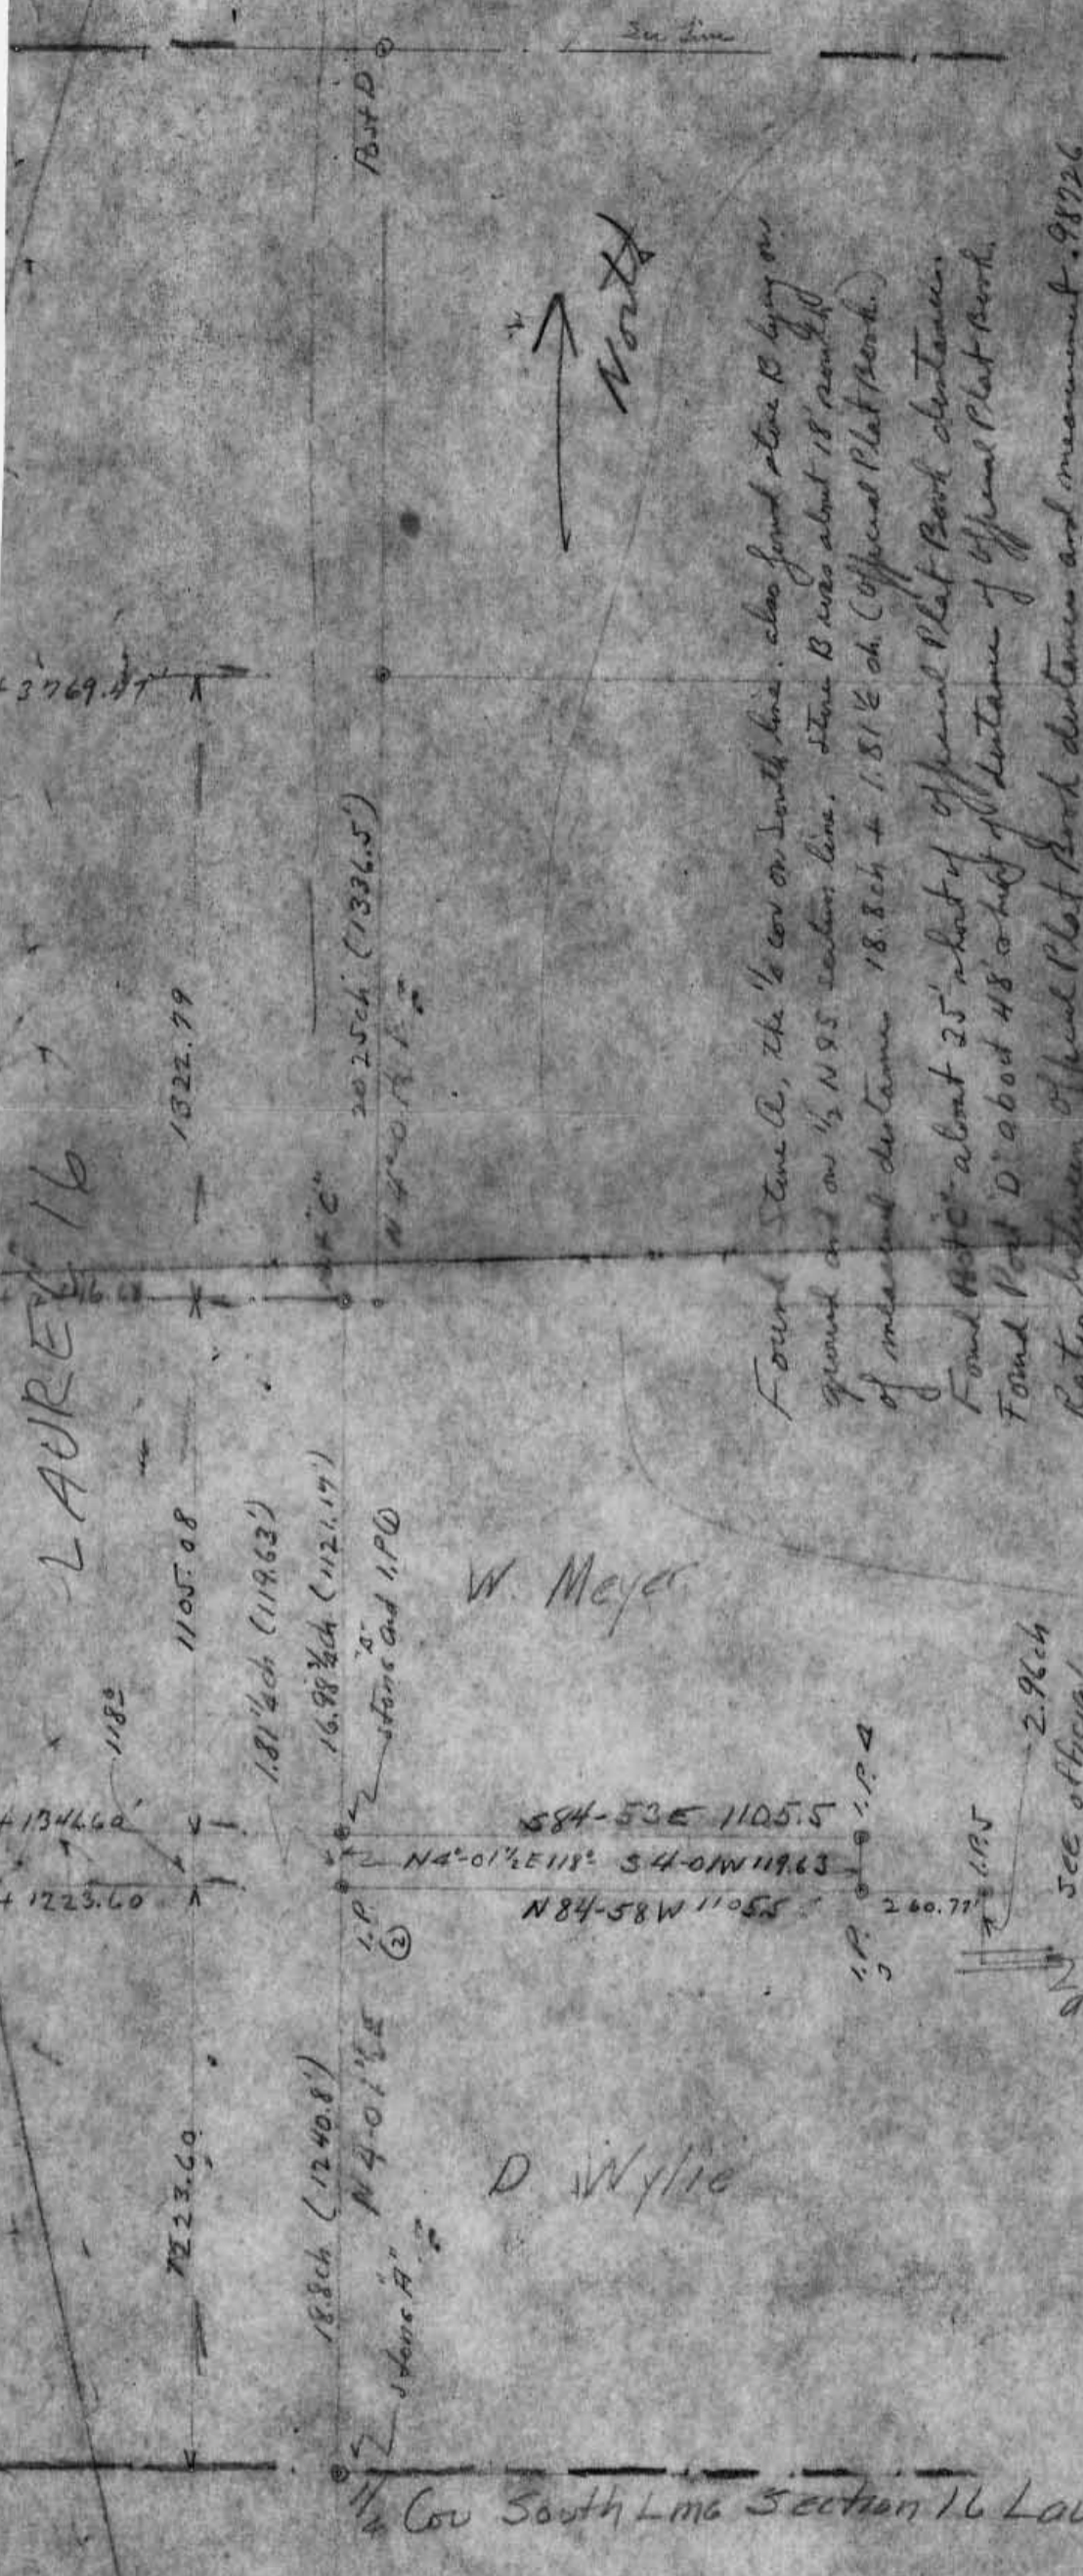 Sec Line
Post D
North
+3769.47'
1322.79
20.25ch (1336.5')
N 4°-01½ E
LAUREL 16
Post "C"
1105.08
1.81¼ch (119.63')
16.98¾ch (1121.17')
"B"
Stone and I.P.①
W. Meyer
118º
+1341.60'
+1223.60
S84-53E 1105.5
N4°-01½E 118º S4-01W 119.63
N84-58W 1105.5
I.P. 4
I.P.
②
I.P.
3
260.77'
I.P.5
2.96ch
See official
1223.60
18.8ch (1240.8')
N 4-01½E
D Wylie
Stone "A"
¼ Cor South Line Section 16 Lau
Found Stone A, the ¼ cor on South line. also found stone B lying on
ground and on ½ N & S section line. Stone B was about 18' south
of measured distance 18.8ch + 1.81¼ ch. (Official Plat Book.)
Found Post "C" about 25' short of official Plat Book distance.
Found Post "D" about 48' short of distance of official Plat Book.
Ratio between official Plat Book distances and measurement .98726